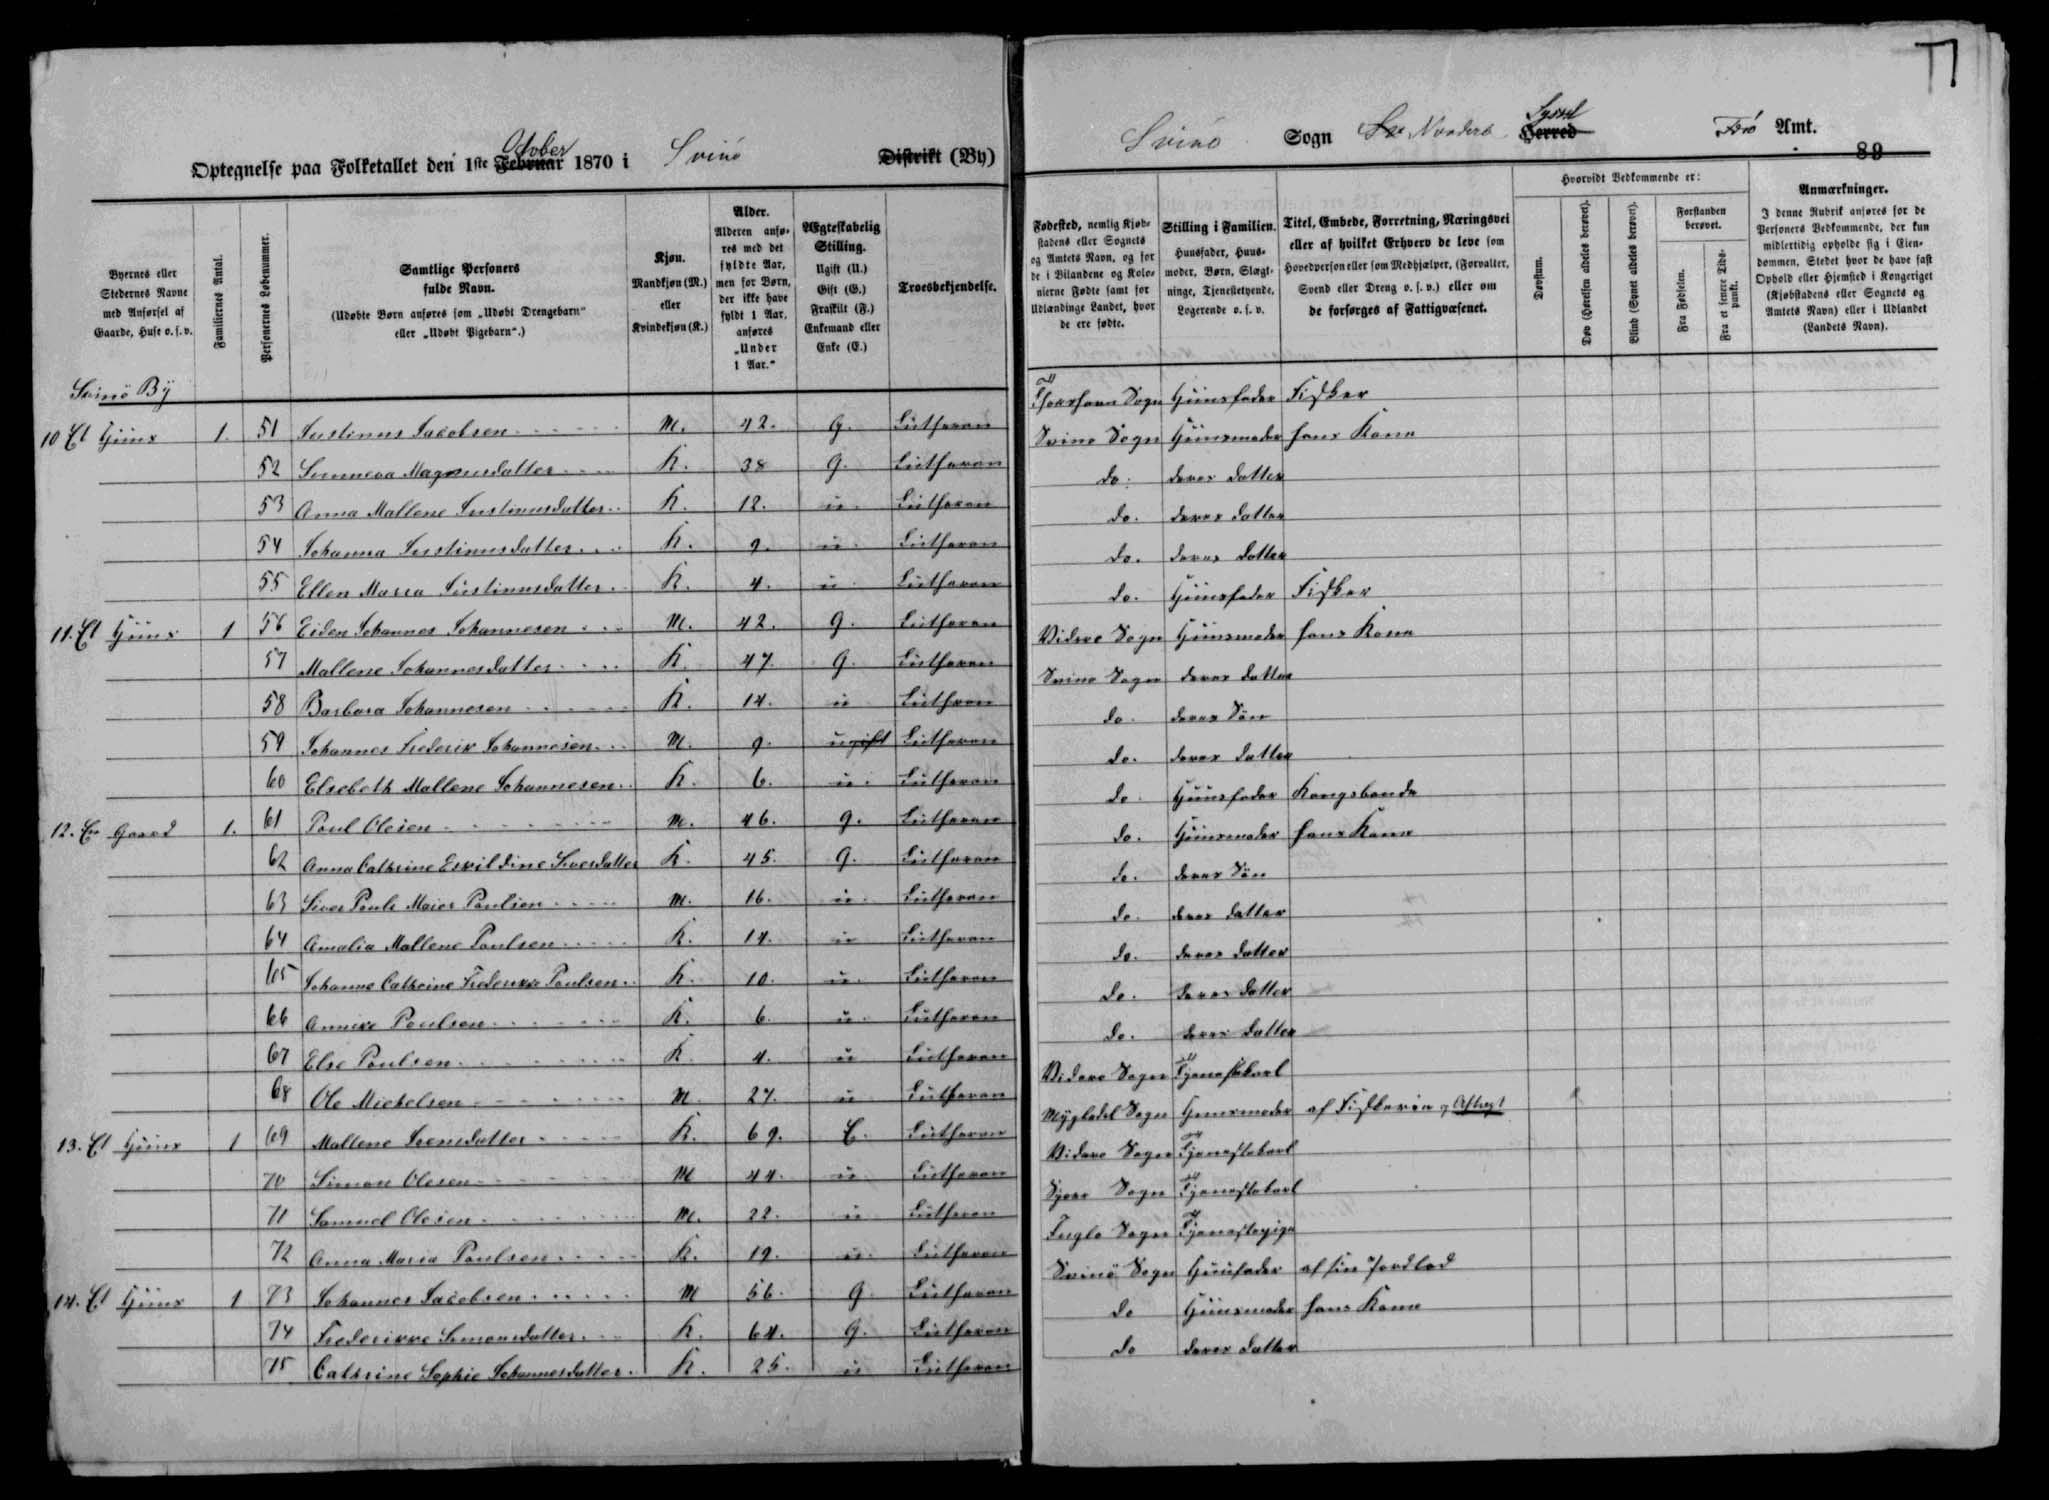 Optegnelse paa Folketallet den 1ste Februar October 1870 i Svinö Distrikt (By)
Byernes eller Stedernes Navne med Anførsel af Gaarde, Huse o.s.v.
Familiernes Antal.
Personernes Løbenummer.
Samtlige Personers fulde Navn.
(Udøbte Børn anføres som „Udøbt Drengebarn“ eller „Udøbt Pigebarn“.)
Kjøn.
Mandkjøn (M.) eller Kvindekjøn (K.)
Alder.
Alderen anføres med det fyldte Aar, men for Børn, der ikke have fyldt 1 Aar, anføres „Under 1 Aar.“
Ægteskabelig Stilling.
Ugift (U.) Gift (G.) Fraskilt (F.) Enkemand eller Enke (E.)
Troesbekjendelse.
Svinö By
10 Et Huus 1. 51 Justinus Jacobsen M. 42. G. Lutheran
52 Sunneva Magnusdatter K. 38 G. Lutheran
53 Anna Mallene Justinusdatter K. 12. u. Lutheran
54 Johanna Justinusdatter K. 9. u. Lutheran
55 Ellen Maria Justinusdatter K. 4. u. Lutheran
11. Et Huus 1 56 Eiden Johannes Johannesen M. 42. G. Lutheran
57 Mallene Johannesdatter K. 47. G. Lutheran
58 Barbara Johannesen K. 14. u Lutheran
59 Johannes Frederik Johannesen M. 9. ugift Lutheran
60 Elsebeth Mallene Johannesen K. 6. u. Lutheran
12. En Gaard 1. 61 Poul Olesen M. 46. g. Lutheran
62 Anna Cathrine Eskildine Siversdatter K. 45. G. Lutheran
63 Siver Pouli Meier Poulsen M. 16. u. Lutheran
64 Amalia Mallene Poulsen K. 14. u Lutheran
65 Johanne Cathrine Frederikke Poulsen K. 10. u. Lutheran
66 Annike Poulsen K. 6. u. Lutheran
67 Else Poulsen K. 4. u Lutheran
68 Ole Mickelsen M 27. u Lutheran
13. Et Huus 1 69 Mallene Joensdatter K. 69. E. Lutheran
70 Simon Olesen M 44. u. Lutheran
71 Samuel Olesen M. 22. u Lutheran
72 Anna Maria Poulsen K. 19. u. Lutheran
14. Et Huus 1 73 Johannes Jacobsen M 56. G Lutheran
74 Frederikke Simonsdatter K. 64. G. Lutheran
75 Cathrine Sophie Johannesdatter K. 25. u Lutheran
Svinö Sogn Norderö Herred Syssel Færö Amt.
89
Fødested, nemlig Kjøbstadens eller Sognets og Amtets Navn, og for de i Bilandene og Kolonierne Fødte samt for Udlændinge Landet, hvor de ere fødte.
Stilling i Familien.
Huusfader, Huusmoder, Børn, Slægtninge, Tjenestetyende, Logerende o.s.v.
Titel, Embede, Forretning, Næringsvei eller af hvilket Erhverv de leve som Hovedperson eller som Medhjælper, (Forvalter, Svend eller Dreng o.s.v.) eller om de forsørges af Fattigvæsenet.
Hvorvidt Vedkommende er:
Døvstum.
Døv (Hørelsen aldeles berøvet).
Blind (Synet aldeles berøvet).
Forstanden berøvet.
Fra Fødselen.
Fra et senere Tidspunkt.
Anmærkninger.
I denne Rubrik anføres for de Personers Vedkommende, der kun midlertidig opholde sig i Eiendommen, Stedet hvor de have fast Ophold eller Hjemsted i Kongeriget (Kjøbstadens eller Sognets og Amtets Navn) eller i Udlandet (Landets Navn).
Thorshavn Sogn Huusfader Fisker
Svinø Sogn Huusmoder hans Kone
do. deres datter
do. deres datter
do. deres datter
do. Huusfader Fisker
Viderø Sogn Huusmoder hans Kone
Svinø Sogn deres datter
do. deres Sön
do. deres datter
do. Huusfader Kongsbonde
do. Huusmoder hans Kone
do. deres Sön
do. deres datter
do. deres datter
do. deres datter
do. deres datter
Viderø Sogn Tjenestekarl
Mygledal Sogn Huusmoder af Fiskerie og Aftægt
Viderø Sogn Tjenestekarl
Sogn Tjenestekarl
Fuglø Sogn Tjenestepige
Svinö Sogn Huusfader af sin Jordlod
do Huusmoder hans Kone
do deres datter